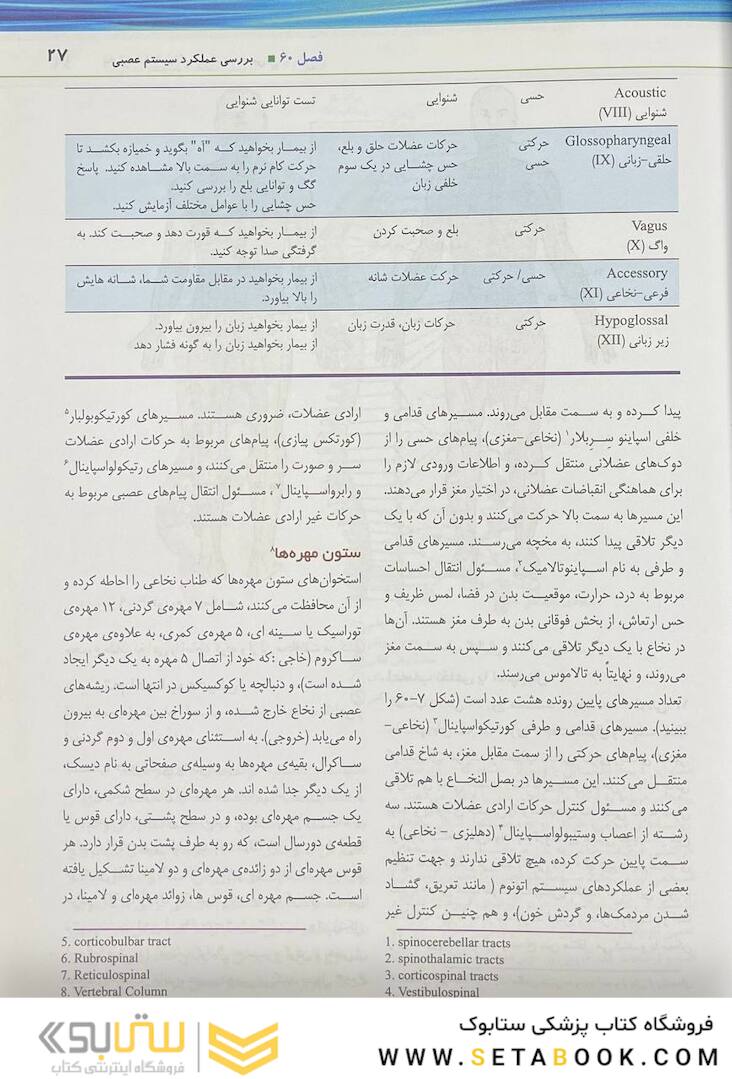 فصل ۶۰ ■ بررسی عملکرد سیستم عصبی
۲۷
Acoustic
شنوایی (VIII)
حسی
شنوایی
تست توانایی شنوایی
Glossopharyngeal
حلقی-زبانی (IX)
حرکتی
حسی
حرکات عضلات حلق و بلع،
حس چشایی در یک سوم
خلفی زبان
از بیمار بخواهید که "آه" بگوید و خمیازه بکشد تا
حرکت کام نرم را به سمت بالا مشاهده کنید. پاسخ
گگ و توانایی بلع را بررسی کنید.
حس چشایی را با عوامل مختلف آزمایش کنید.
Vagus
واگ (X)
حرکتی
بلع و صحبت کردن
از بیمار بخواهید که قورت دهد و صحبت کند. به
گرفتگی صدا توجه کنید.
Accessory
فرعی-نخاعی (XI)
حسی/ حرکتی
حرکت عضلات شانه
از بیمار بخواهید در مقابل مقاومت شما، شانه هایش
را بالا بیاورد.
Hypoglossal
زیر زبانی (XII)
حرکتی
حرکات زبان، قدرت زبان
از بیمار بخواهید زبان را بیرون بیاورد.
از بیمار بخواهید زبان را به گونه فشار دهد
پیدا کرده و به سمت مقابل می‌روند. مسیرهای قدامی و
خلفی اسپاینو سِربلار۱ (نخاعی-مغزی)، پیام‌های حسی را از
دوک‌های عضلانی منتقل کرده، و اطلاعات ورودی لازم را
برای هماهنگی انقباضات عضلانی، در اختیار مغز قرار می‌دهند.
این مسیرها به سمت بالا حرکت می‌کنند و بدون آن که با یک
دیگر تلاقی پیدا کنند، به مخچه می‌رسند. مسیرهای قدامی
و طرفی به نام اسپاینوتالامیک۲، مسئول انتقال احساسات
مربوط به درد، حرارت، موقعیت بدن در فضا، لمس ظریف و
حس ارتعاش، از بخش فوقانی بدن به طرف مغز هستند. آن‌ها
در نخاع با یک دیگر تلاقی می‌کنند و سپس به سمت مغز
می‌روند، و نهایتاً به تالاموس می‌رسند.
تعداد مسیرهای پایین رونده هشت عدد است (شکل ۷-۶۰ را
ببینید). مسیرهای قدامی و طرفی کورتیکواسپاینال۳ (نخاعی-
مغزی)، پیام‌های حرکتی را از سمت مقابل مغز، به شاخ قدامی
منتقل می‌کنند. این مسیرها در بصل النخاع با هم تلاقی
می‌کنند و مسئول کنترل حرکات ارادی عضلات هستند. سه
رشته از اعصاب وستیبولواسپاینال۴ (دهلیزی - نخاعی) به
سمت پایین حرکت کرده، هیچ تلاقی ندارند و جهت تنظیم
بعضی از عملکردهای سیستم اتونوم ( مانند تعریق، گشاد
شدن مردمک‌ها، و گردش خون)، و هم چنین کنترل غیر
1. spinocerebellar tracts
2. spinothalamic tracts
3. corticospinal tracts
4. Vestibulospinal
ارادی عضلات، ضروری هستند. مسیرهای کورتیکوبولبار۵
(کورتکس پیازی)، پیام‌های مربوط به حرکات ارادی عضلات
سر و صورت را منتقل می‌کنند، و مسیرهای رتیکولواسپاینال۶
و رابرواسپاینال۷، مسئول انتقال پیام‌های عصبی مربوط به
حرکات غیر ارادی عضلات هستند.
ستون مهره‌ها۸
استخوان‌های ستون مهره‌ها که طناب نخاعی را احاطه کرده و
از آن محافظت می‌کنند، شامل ۷ مهره‌ی گردنی، ۱۲ مهره‌ی
توراسیک یا سینه ای، ۵ مهره‌ی کمری، به علاوه‌ی مهره‌ی
ساکروم (خاجی :که خود از اتصال ۵ مهره به یک دیگر ایجاد
شده است)، و دنبالچه یا کوکسیکس در انتها است. ریشه‌های
عصبی از نخاع خارج شده، و از سوراخ بین مهره‌ای به بیرون
راه می‌یابد (خروجی). به استثنای مهره‌ی اول و دوم گردنی و
ساکرال، بقیه‌ی مهره‌ها به وسیله‌ی صفحاتی به نام دیسک،
از یک دیگر جدا شده اند. هر مهره‌ای در سطح شکمی، دارای
یک جسم مهره‌ای بوده، و در سطح پشتی، دارای قوس یا
قطعه‌ی دورسال است، که رو به طرف پشت بدن قرار دارد. هر
قوس مهره‌ای از دو زائده‌ی مهره‌ای و دو لامینا تشکیل یافته
است. جسم مهره ای، قوس ها، زوائد مهره‌ای و لامینا، در
5. corticobulbar tract
6. Rubrospinal
7. Reticulospinal
8. Vertebral Column
فروشگاه کتاب پزشکی ستابوک
WWW.SETABOOK.COM
ستابوک
فروشگاه اینترنتی کتاب